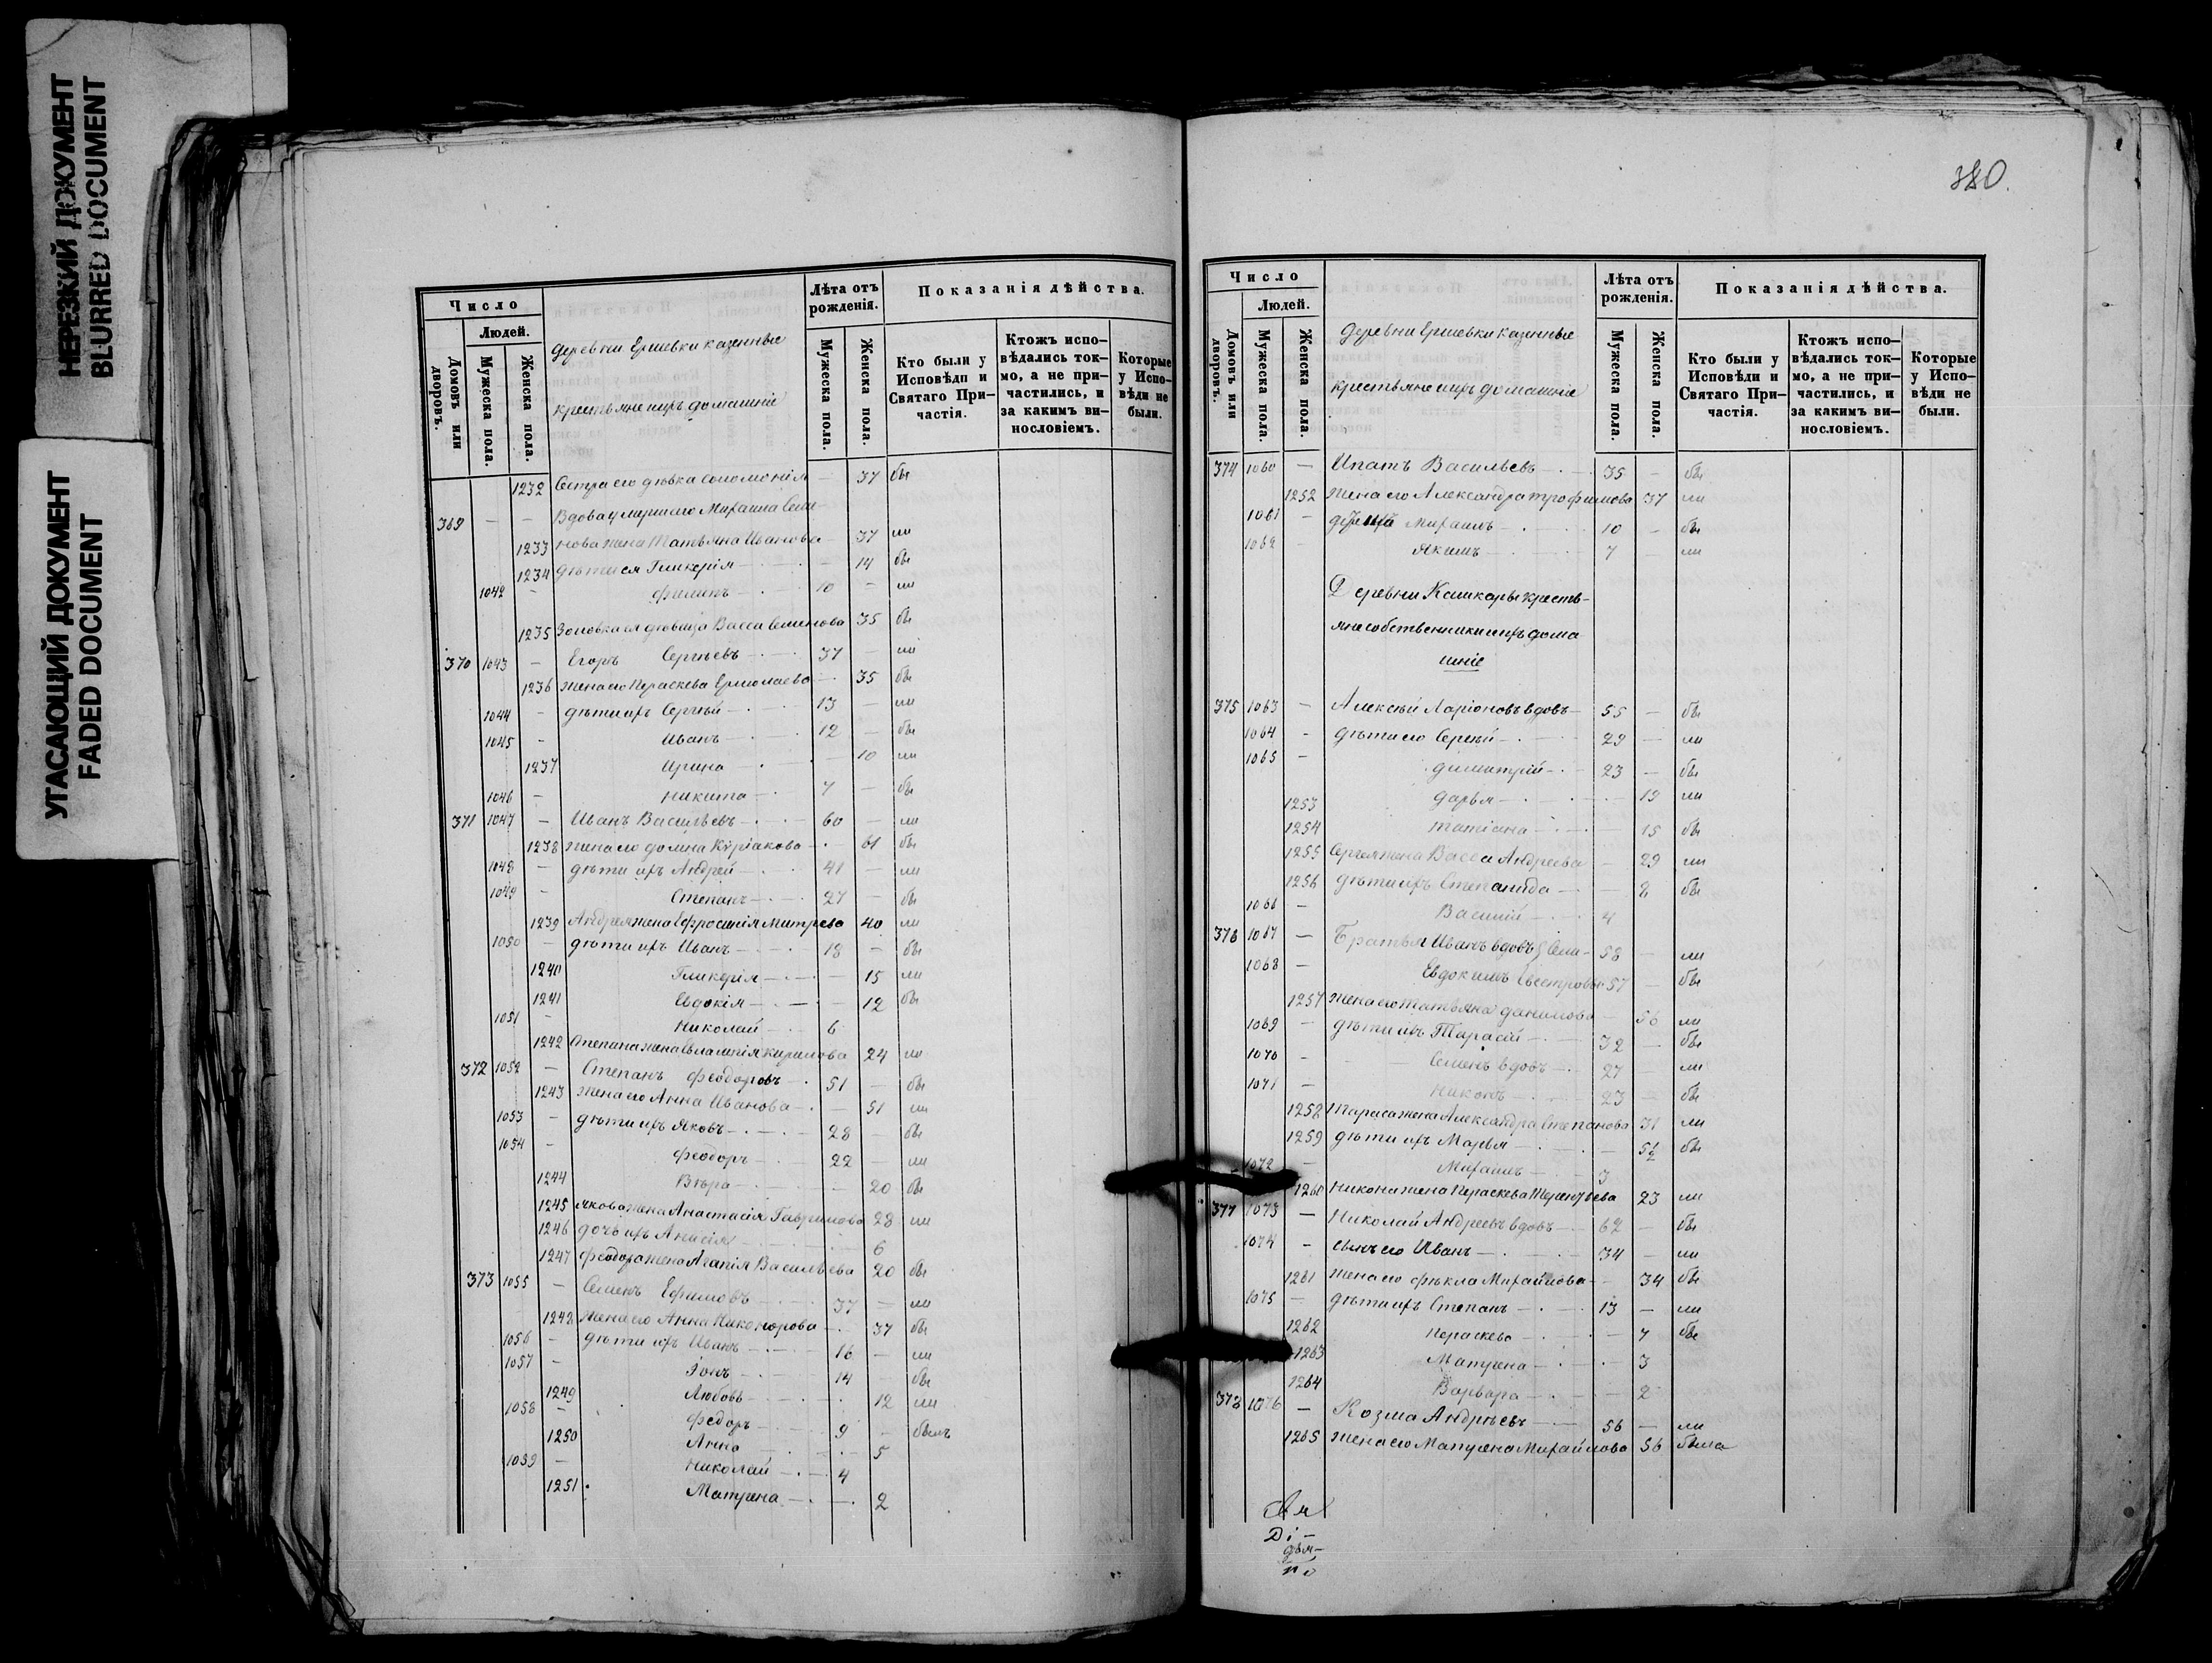 НЕРЕЗКИЙ ДОКУМЕНТ
BLURRED DOCUMENT
УГАСАЮЩИЙ ДОКУМЕНТ
FADED DOCUMENT
Число
Людей.
Домовъ или дворовъ.
Мужеска пола.
Женска пола.
деревни Ершевки казенные
крестьяне ихъ домашніе
Лѣта отъ рожденія.
Мужеска пола.
Женска пола.
Показанія дѣйства.
Кто были у Исповѣди и Святаго Причастія.
Ктожъ исповѣдались токмо, а не причастились, и за какимъ винословіемъ.
Которые у Исповѣди не были.
1232 Сестра его дѣвка Соломонія — 37 бы
369 — — Вдова умершаго Михаила Семе
1233 нова жена Татьяна Иванова 37 ли
1234 дѣти ея Гликерія — 14 бы
1042 — Филипъ 10 — ли
1235 Золовка ея дѣвица Васса Семенова 35 бы
370 1043 — Егоръ Сергѣевъ 37 — ли
1236 жена его Параскева Ермолаева 35 бы
1044 — дѣти ихъ Сергѣй 13 — ли
1045 — Иванъ 12 — бы
1237 Ирина — 10 ли
1046 — Никита 7 — бы
371 1047 — Иванъ Васильевъ 60 — ли
1238 жена его Домна Курiакова 61 бы
1048 — дѣти ихъ Андрей 41 — ли
1049 — Степанъ 27 — бы
1239 Андрея жена Ефросинія Митрева 40 ли
1050 — дѣти ихъ Иванъ 18 — бы
1240 Гликерія — 15 ли
1241 Евдокія — 12 бы
1051 — Николай 6
1242 Степана жена Евлампія Кирилова 24 ли
372 1052 — Степанъ Феодоровъ 51 — бы
1243 жена его Анна Иванова — 51 ли
1053 — дѣти ихъ Яковъ 28 — бы
1054 — Феодоръ 22 — ли
1244 Вѣра — 20 бы
1245 Якова жена Анастасія Гаврилова 28 ли
1246 дочь ихъ Анисія 6
1247 Феодора жена Агапія Васильева 20 бы
373 1055 — Семенъ Ефимовъ 37 — ли
1248 жена его Анна Никонорова 37 бы
1056 — дѣти ихъ Иванъ 16 — ли
1057 — Іонъ 14 бы
1249 Любовь 12 ли
1058 — Федоръ 9 — былъ
1250 Анна — 5
1059 — Николай 4
1251 Матрена — 2
380.
Число
Людей.
Домовъ или дворовъ.
Мужеска пола.
Женска пола.
деревни Ершевки казенные
крестьяне ихъ домашніе
Лѣта отъ рожденія.
Мужеска пола.
Женска пола.
Показанія дѣйства.
Кто были у Исповѣди и Святаго Причастія.
Ктожъ исповѣдались токмо, а не причастились, и за какимъ винословіемъ.
Которые у Исповѣди не были.
374 1060 — Ипатъ Васильевъ 35 — бы
1252 жена его Александра Трофимова 37 ли
1061 — Михаилъ 10 — бы
1062 — Якимъ 7 — ли
Деревни Кашкары кресть-
яне собственники ихъ дома
шніе
375 1063 — Алексѣй Ларіоновъ вдовъ 55 — бы
1064 — дѣти его Сергѣй 29 — ли
1065 — Димитрій 23 — бы
1253 Дарья — 19 ли
1254 Татіана — 15 бы
1255 Сергея жена Васса Андреева — 29 ли
1256 дѣти ихъ Степанида — 8 бы
1066 — Василій 4
376 1067 — Братья Иванъ вдовъ 58 — ли
1068 — Евдокимъ 57 — бы
1257 жена его Татьяна Данилова 56 ли
1069 — дѣти ихъ Тарасій 32 — бы
1070 — Семенъ вдовъ 27 — ли
1071 — Никонъ 23 — бы
1258 Тараса жена Александра Степанова 31 ли
1259 дѣти ихъ Марья — бы
1072 — Михаилъ 3
1260 Никона жена Параскева Терентьева 23 ли
377 1073 — Николай Андреевъ вдовъ 62 — бы
1074 — сынъ его Иванъ 34 — ли
1261 жена его Фекла Михайлова 34 бы
1075 — дѣти ихъ Степанъ 13 — ли
1262 Параскева — 7 бы
1263 Матрена — 3
1264 Варвара — 2
378 1076 — Козма Андрѣевъ 56 — ли
1265 жена его Матрена Михайлова 56 была
Ді-